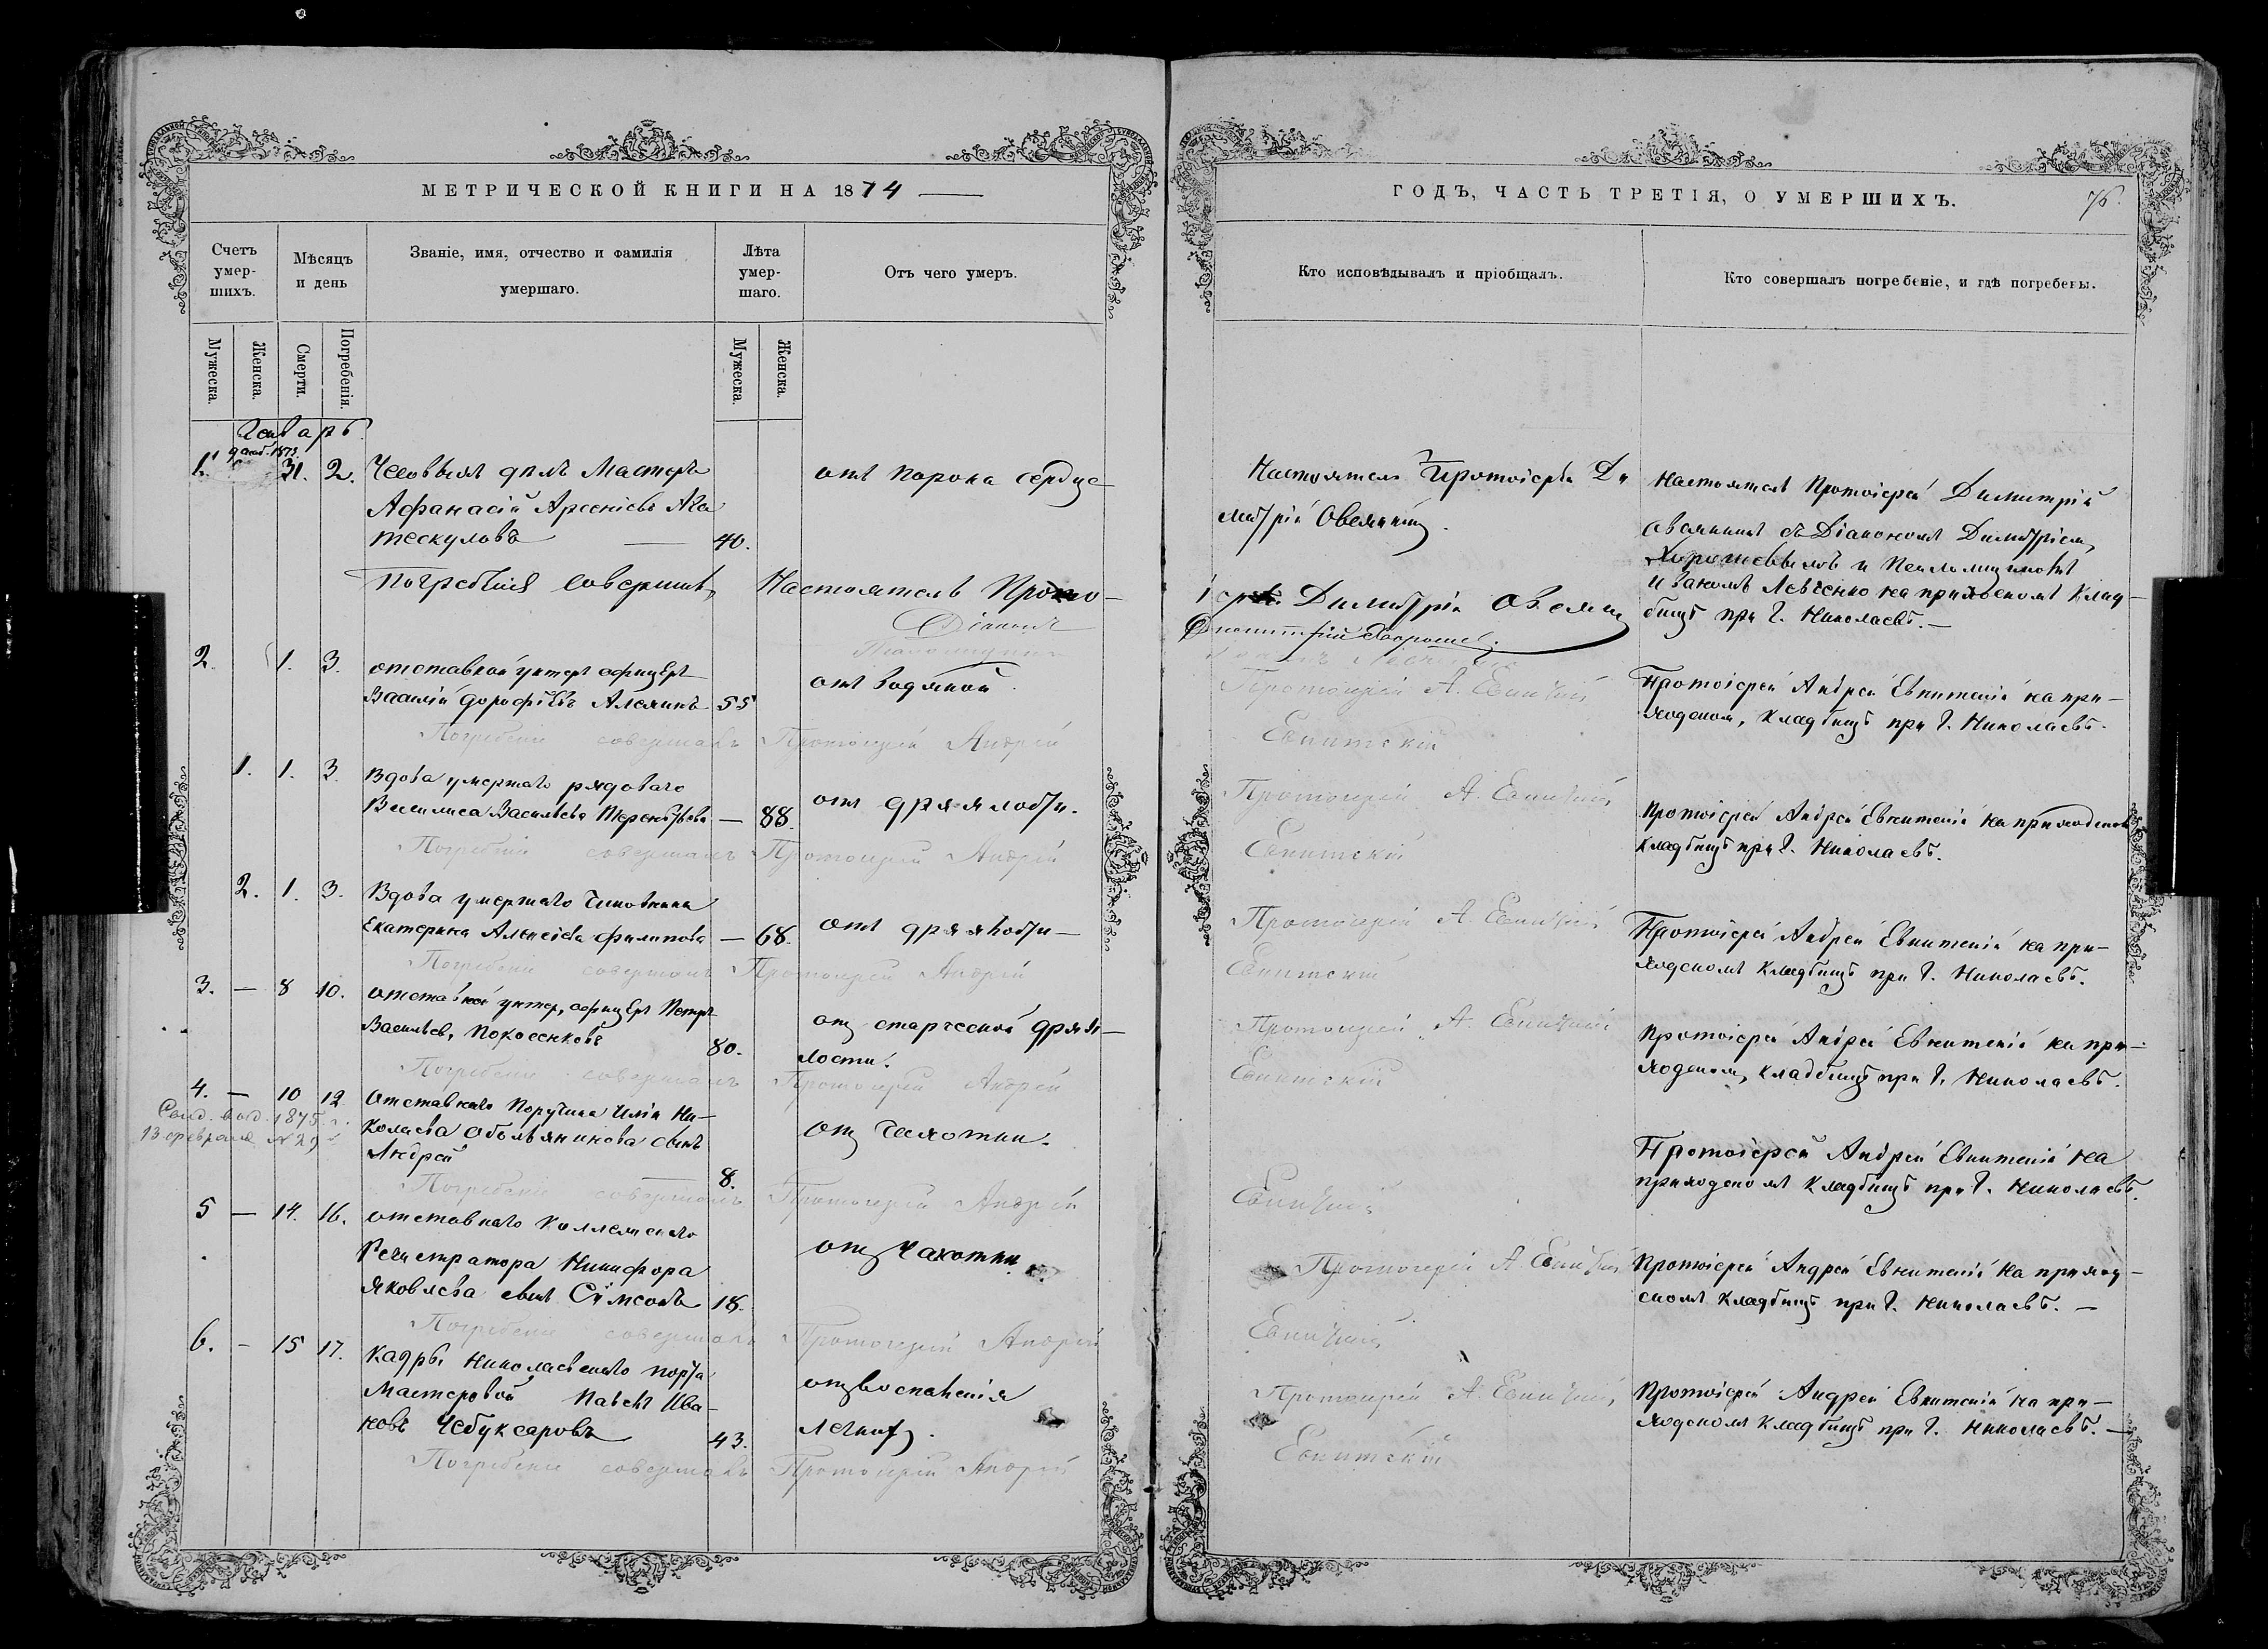 МЕТРИЧЕСКОЙ КНИГИ НА 1874
Счетъ умер-шихъ.
Мѣсяцъ и день
Званіе, имя, отчество и фамилія умершаго.
Лѣта умер-шаго.
Отъ чего умеръ.
Мужеска.
Женска.
Смерти.
Погребенія.
Мужеска.
Женска.
Январь
1. 31. 2. дѣлъ Мастеръ
Афанасій Арсеніевъ
40.
отъ порока сердца
Погребеніе совершилъ Настоятель Прото-
Діаконъ
2. 1. 3. отставной унтеръ офицеръ
Василій Дорофѣевъ 55
отъ водяной
Погребеніе совершалъ Протоіерей Андрей
1. 1. 3. Вдова умершаго рядоваго
Василиса Васильева Терентьева — 88.
отъ дряхлости.
Погребеніе совершалъ Протоіерей Андрей
2. 1. 3. Вдова умершаго Чиновника
Екатерина Алексіева Филипова — 68.
отъ дряхлости —
Погребеніе совершалъ Протоіерей Андрей
3. — 8 10. отставной унтеръ офицеръ Петръ
Васильевъ 80.
отъ старческой дрях-
лости.
Погребеніе совершалъ Протоіерей Андрей
4. — 10 12 Отставнаго Поручика Иліи Ни-
колаева Обольянинова сынъ
Андрей
8.
отъ чахотки.
1875
13 февраля № 29
Погребеніе совершалъ Протоіерей Андрей
5 — 14. 16. отставнаго Коллежскаго
Регистратора Никифора
Яковлева сынъ Сѵмеонъ 18.
отъ чахотки
Погребеніе совершалъ Протоіерей Андрей
6. — 15 17. Кадры Николаевскаго порта
Мастеровой Павелъ Ива-
новъ Чебуксаровъ 43.
отъ воспаленія
легкихъ.
Погребеніе совершалъ Протоіерей Андрей
ГОДЪ, ЧАСТЬ ТРЕТІЯ, О УМЕРШИХЪ.
76.
Кто исповѣдывалъ и пріобщалъ.
Кто совершалъ погребеніе, и гдѣ погребены.
Настоятель Протоіерей Ди
митрій Овсянкинъ.
Настоятель Протоіерей Димитрій
съ Діакономъ Димитріемъ
Хорошевымъ и
Левченко на приходскомъ Клад-
бищѣ при г. Николаевѣ. —
іерей Димитрій
Протоіерей А.
Протоіерей Андрей Евкитскій на при-
ходскомъ кладбищѣ при г. Николаевѣ.
Евкитскій
Протоіерей А.
Евкитскій
Протоіерей Андрей Евкитскій на приходскомъ
кладбищѣ при г. Николаевѣ.
Протоіерей А.
Евкитскій
Протоіерей Андрей Евкитскій на при-
ходскомъ кладбищѣ при г. Николаевѣ.
Протоіерей А.
Евкитскій
Протоіерей Андрей Евкитскій на при-
ходскомъ кладбищѣ при г. Николаевѣ.
Протоіерей Андрей Евкитскій на
приходскомъ кладбищѣ при г. Николаевѣ.
Протоіерей А.
Протоіерей Андрей Евкитскій на приход-
скомъ кладбищѣ при г. Николаевѣ. —
Протоіерей А.
Евкитскій
Протоіерей Андрей Евкитскій на при-
ходскомъ кладбищѣ при г. Николаевѣ. —